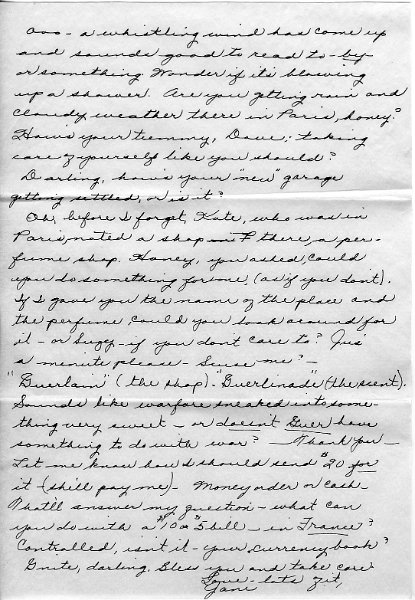 Ooo - a whistling wind has come up
and sounds good to read to - by -
or something. Wonder if its blowing
up a shower. Are you getting rain and
cloudy weather there in Paris, honey?
How's your tummy, Dave; taking
care of yourself like you should?
Darling, how's your "new" garage
getting settled, or is it?
Oh, before I forget, Kate, who was in
Paris, noted a shop there, a per-
fume shop. Honey, you asked, could
you do something for me, (as if you don't).
If I gave you the name of the place and
the perfume, could you look around for
it - or Suzy - if you don't care to? Jus
a minute please - Scuse me? -
"Guerlain" (the shop) - "Guerlinade" (the scent).
Sounds like warfare sneaked into some-
thing very sweet - or doesn't Guer have
something to do with war? - Thank you -
Let me know how I should send $20 for
it (she'll pay me) - Money order or cash -
That'll answer my question - what can
you do with a $10 or $5 bill - in France?
Controlled, isn't it - your currency book?
G'nite, darling. Bless you and take care
Love - lots of it,
Jane